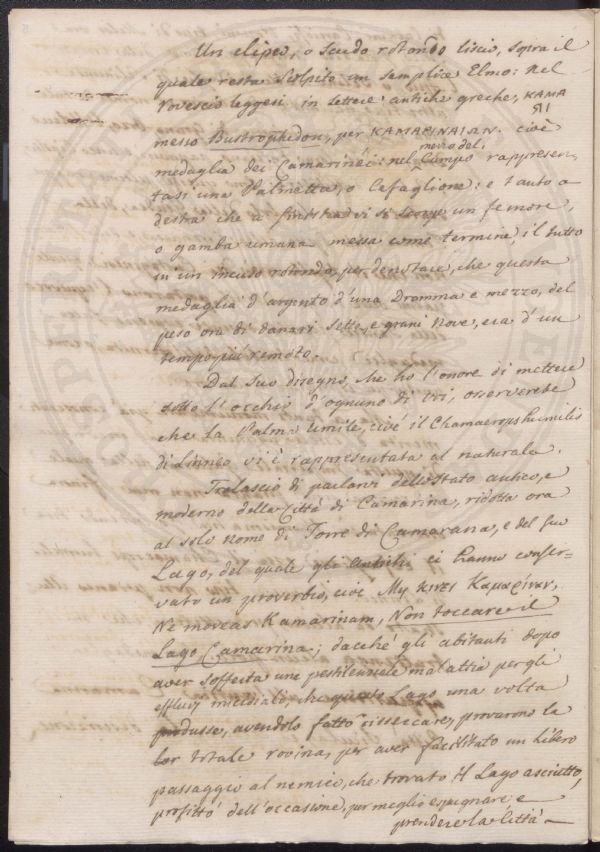 Un clipeo, o scudo rotondo liscio, sopra il
quale resta scolpito un semplice Elmo: nel
rovescio leggesi in lettere antiche greche, KAMA
ЯI
messo Bustrophedon, per KAMAPINAIΩN. cioè
medaglia dei Camarinéi: nel mezzo del Campo rappresen,
tasi una Palmetta, o Cefaglione; e tanto a
destra che a sinistra vi si scorge un femore,
o gamba umana messa come termine, il tutto
in un incuso rotondo, per denotare, che questa
medaglia d'argento d'una Dramma e mezzo, del
peso ora di danari sette, e grani nove, era d'un
tempo più remoto.
Dal suo disegno, che ho l'onore di mettere
sotto l'occhio d'ognuno di voi, osserverete
che la Palma umile, cioè il Chamaerops humilis
di Linneo vi è rappresentata al naturale.
Tralascio di parlarvi dello stato antico, e
moderno della Città di Camarina, ridotta ora
al solo nome di Torre di Camarana, e del suo
Lago, del quale gli antichi ci hanno conser-
vato un proverbio, cioè Μη κινει Καμαρίναν,
Ne moveas Kamarinam, Non toccare il
Lago Camarina; dacché gli abitanti dopo
aver sofferta una pestilenziale malattia per gli
effluvj micidiali, che questo Lago una volta
produsse, avendolo fatto disseccare, provarono la
lor totale rovina, per aver facilitato un libero
passaggio al nemico, che trovato il Lago asciutto,
profittò dell'occasione, per meglio espugnare e
prendere la Città